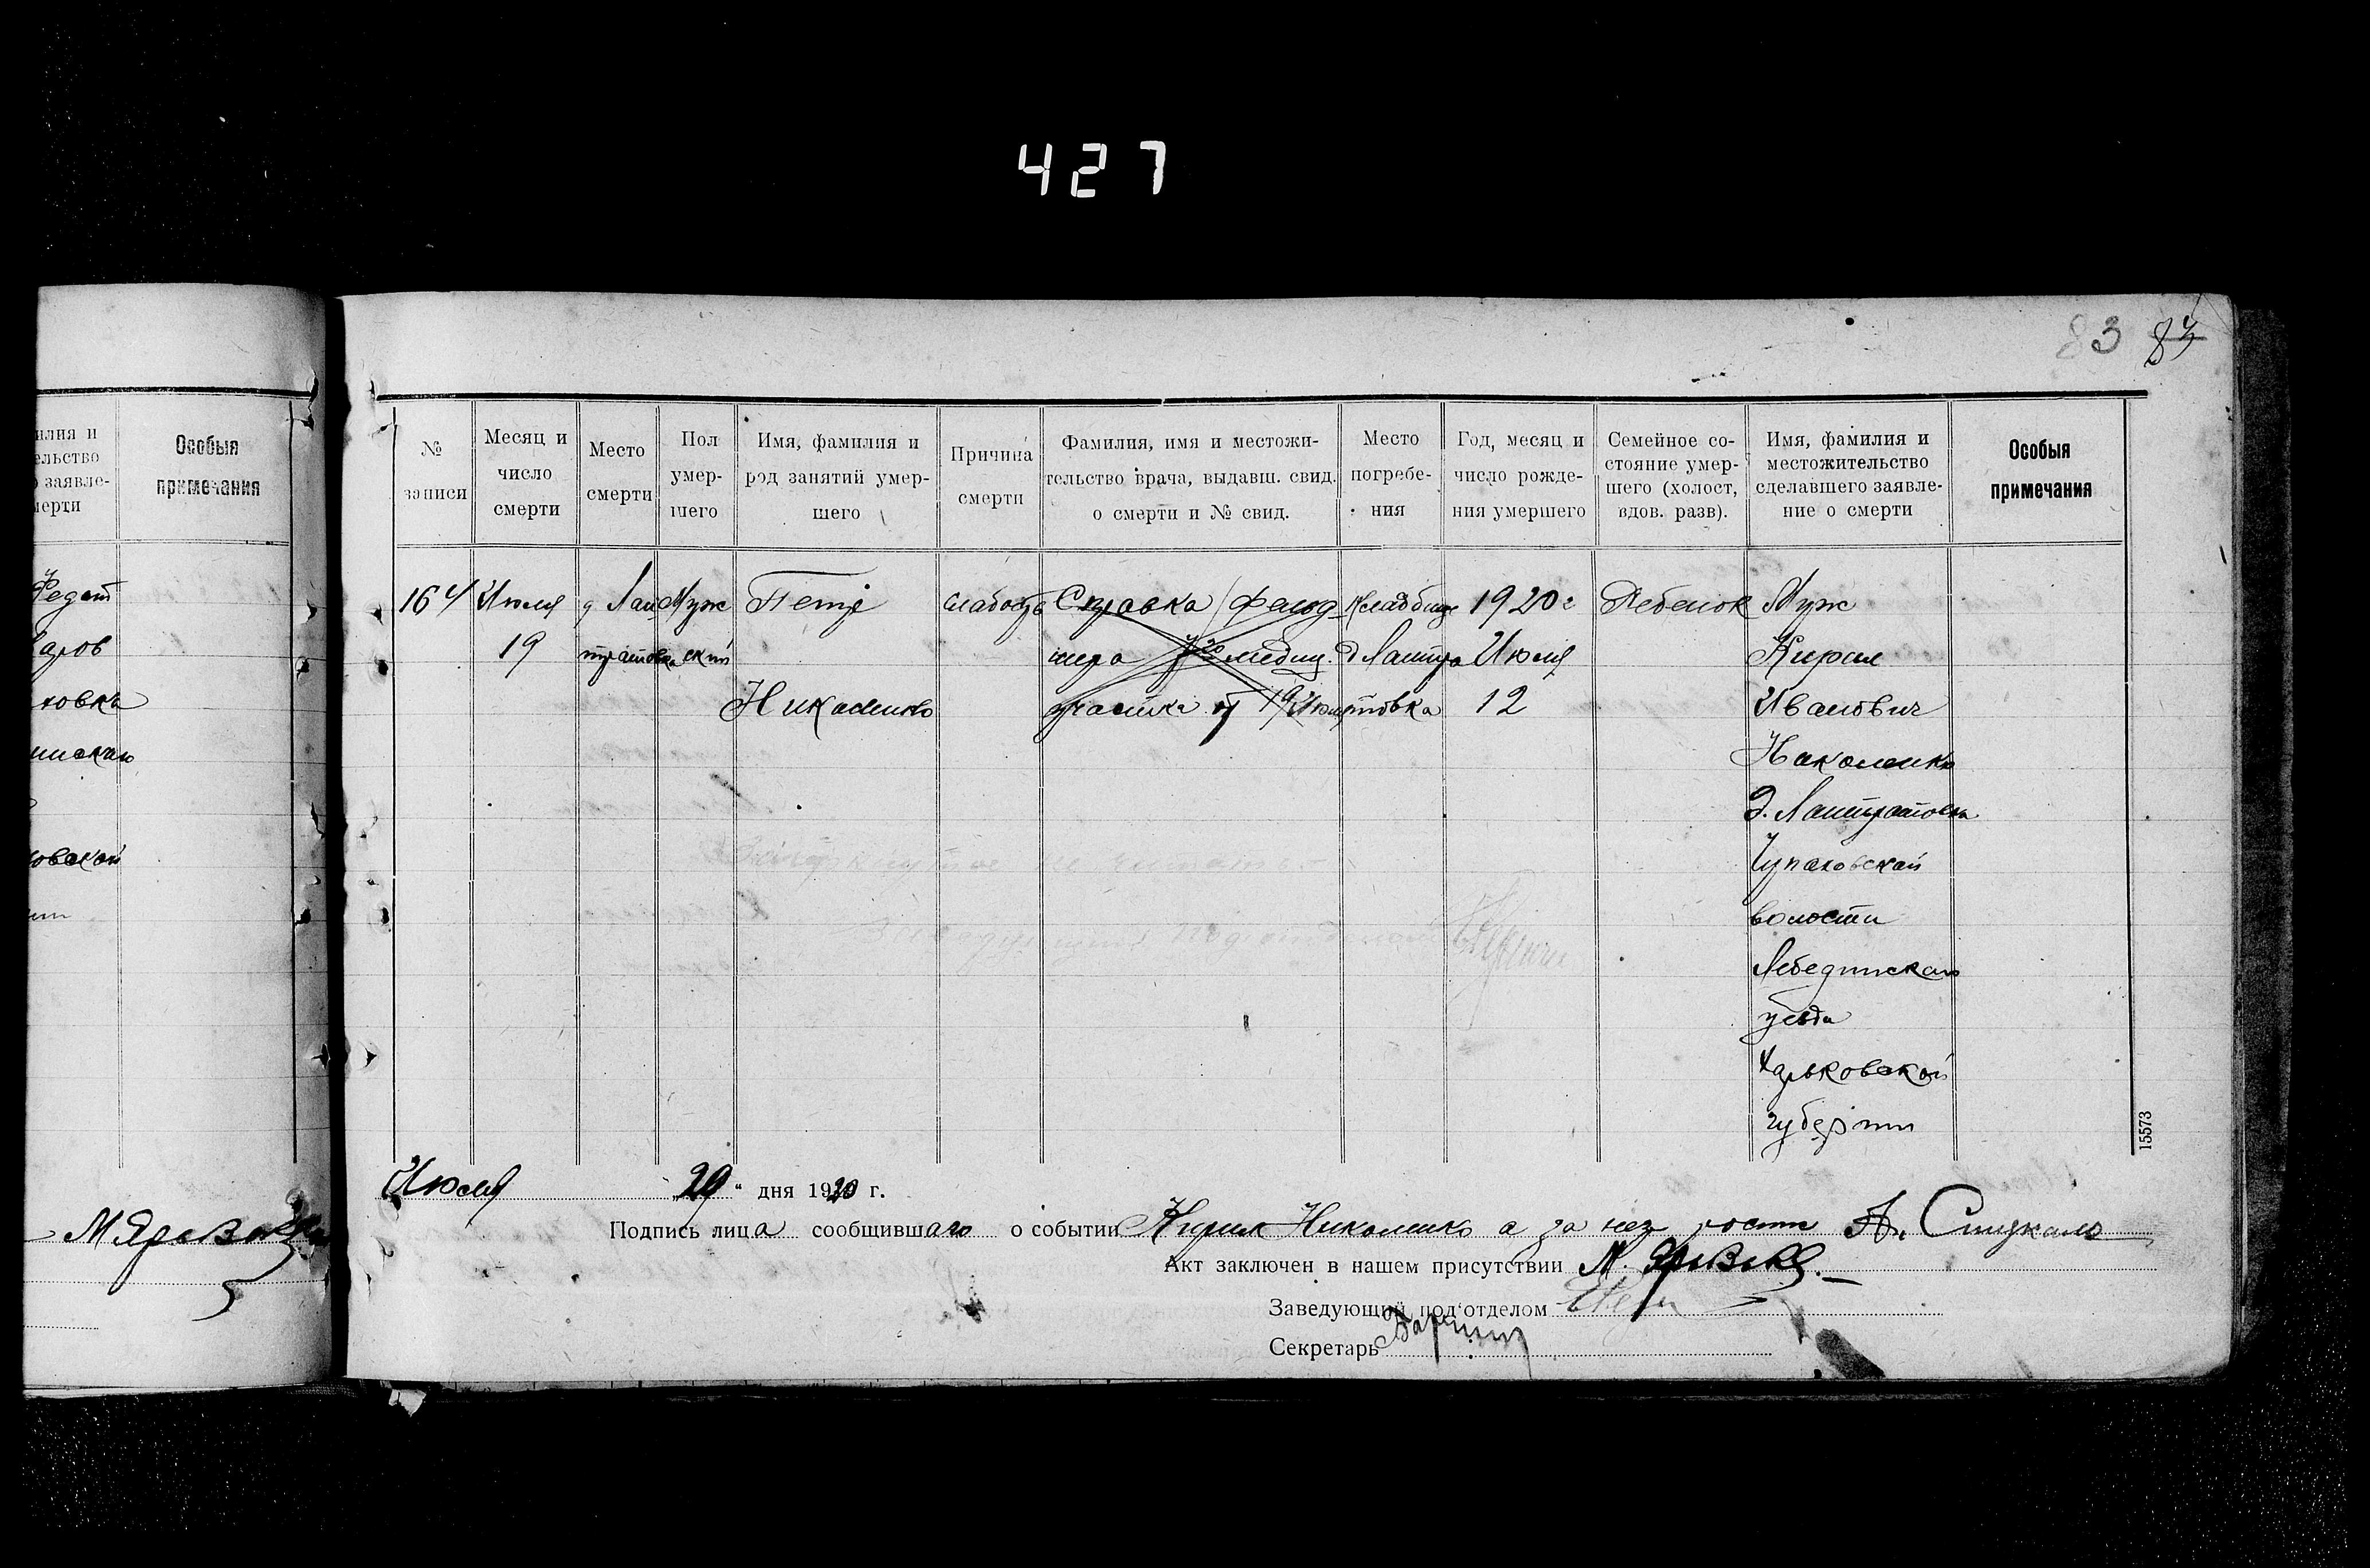 427
83 83
илия и
ельство
заявле-
мерти
Особыя
примечания
Федот
ховка
ховской
М Яровой
№
записи
Месяц и
число
смерти
Место
смерти
Пол
умер-
шего
Имя, фамилия и
род занятий умер-
шего
Причина
смерти
Фамилия, имя и местожи-
тельство врача, выдавш. свид.
о смерти и № свид.
Место
погребе-
ния
Год, месяц и
число рожде-
ния умершего
Семейное со-
стояние умер-
шего (холост,
вдов. разв).
Имя, фамилия и
местожительство
сделавшего заявле-
ние о смерти
Особыя
примечания
164
Июля
19
Муж
ский
Петр
Николенко
слабость
Справка фельд
шера медиц.
участка от 19 Июля
Кладбище
1920 г
Июля
12
Ребенок
Муж
Кирил
Иванович
Николенко
Чупаховской
волости
Лебединскаго
уезда
Харьковской
губернии
15573
Июля 29 " дня 1920 г.
Подпись лица сообщившаго о событии Кирил Николенко а за нег рости
Акт заключен в нашем присутствии М.
Заведующий под'отделом
Секретарь